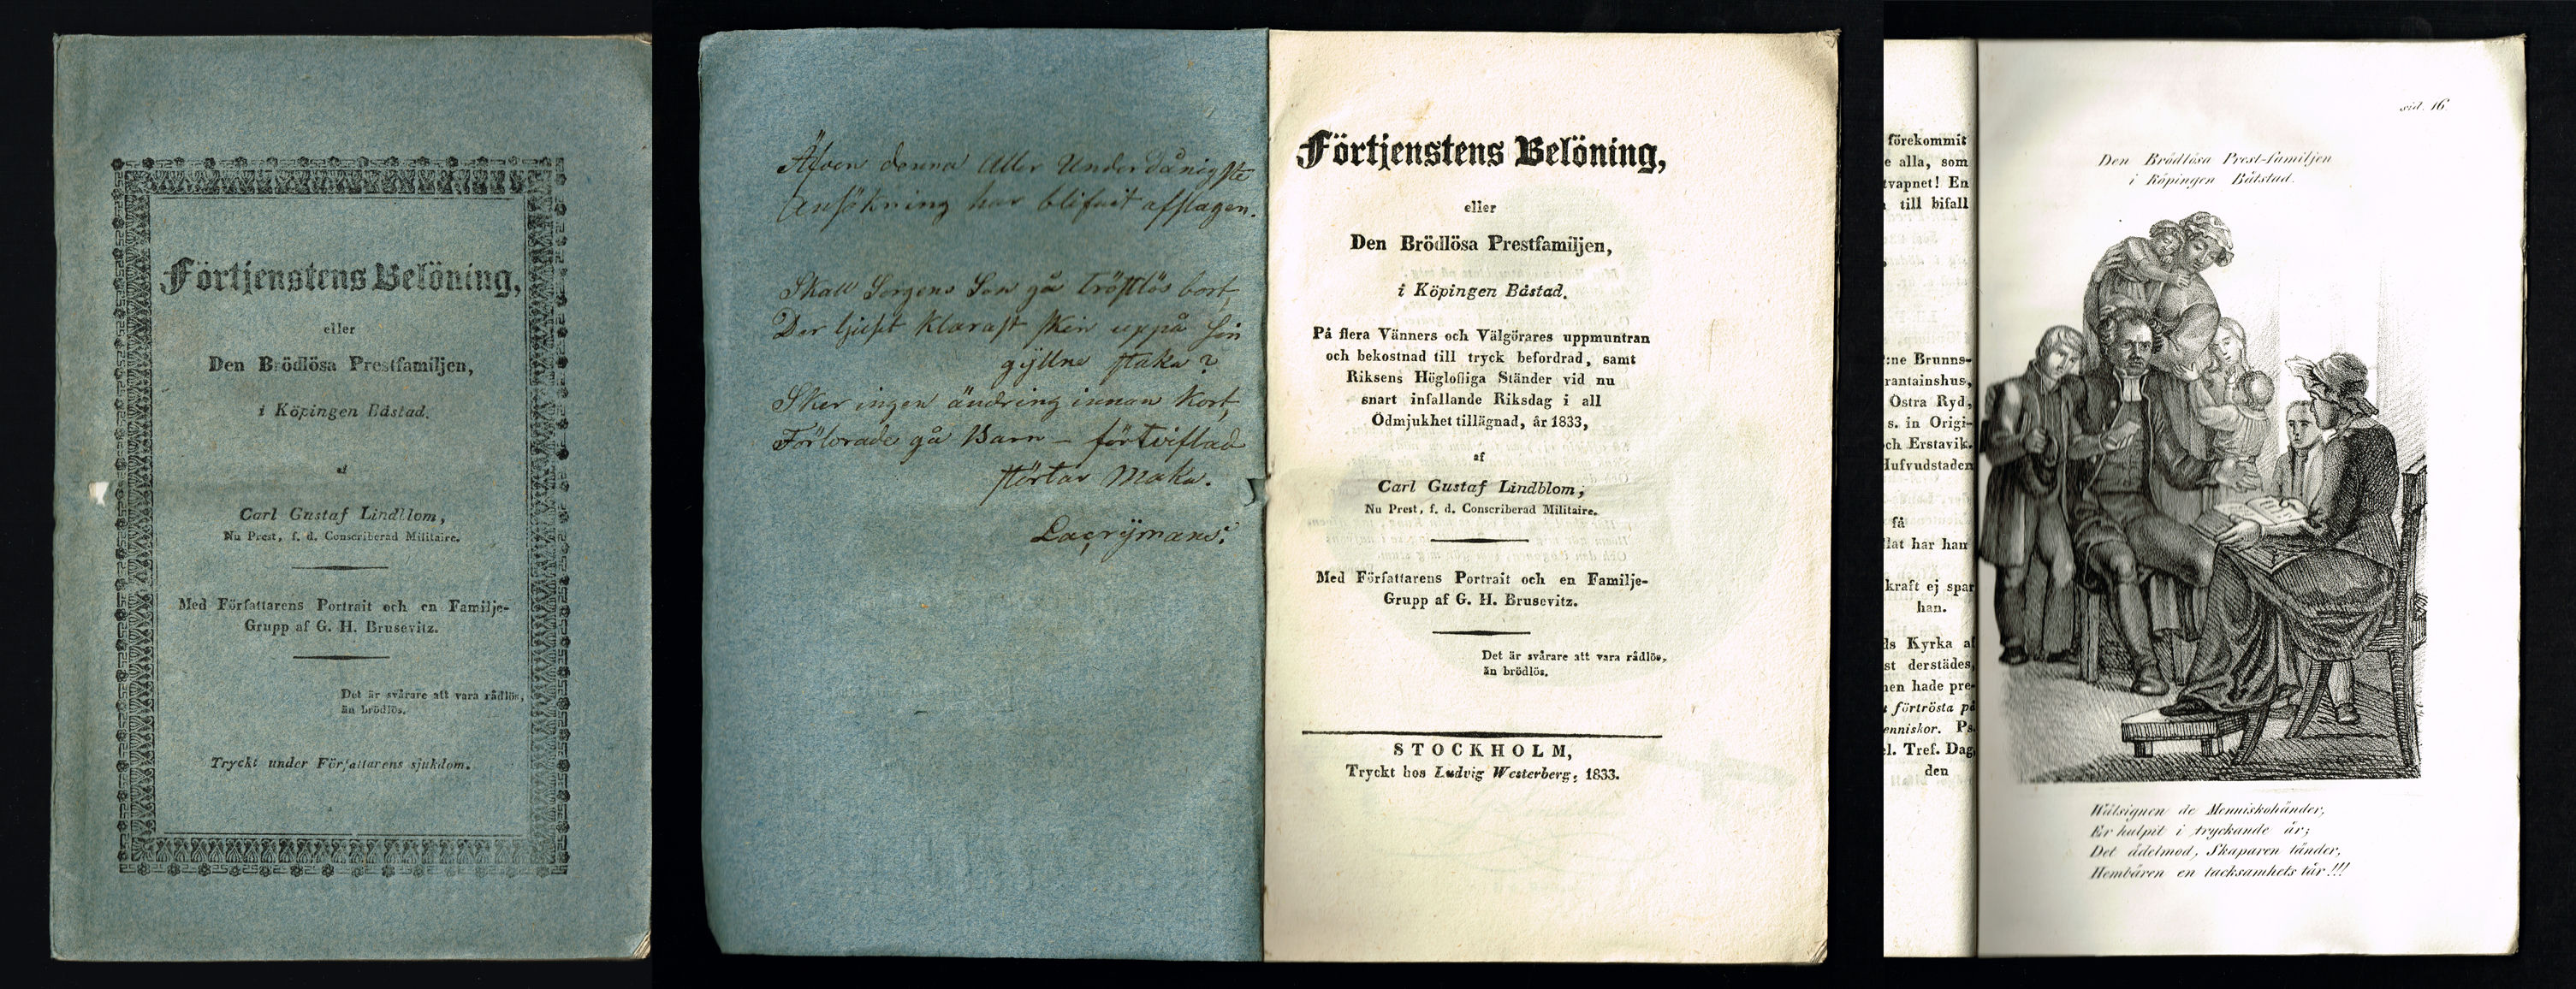 Förtjenstens Belöning,
eller
Den Brödlösa Prestfamiljen,
i Köpingen Båstad.
af
Carl Gustaf Lindblom,
Nu Prest, f. d. Conscriberad Militaire.
Med Författarens Portrait och en Familje-
Grupp af G. H. Brusevitz.
Det är svårare att vara rådlös,
än brödlös.
Tryckt under Författarens sjukdom.
Äfven denna Aller Underdånigste
Ansökning har blifvit afslagen.
Skall Sorgens Son gå tröstlös bort,
Der ljuset klarast sken uppå sin
gyllne staka?
Sker ingen ändring innan kort,
Förlorade gå Barn – förtviflad
störtar Maka.
Lacrÿmans.
Förtjenstens Belöning,
eller
Den Brödlösa Prestfamiljen,
i Köpingen Båstad.
På flera Vänners och Välgörares uppmuntran
och bekostnad till tryck befordrad, samt
Riksens Höglofliga Ständer vid nu
snart infallande Riksdag i all
Ödmjukhet tillägnad, år 1833,
af
Carl Gustaf Lindblom,
Nu Prest, f. d. Conscriberad Militaire.
Med Författarens Portrait och en Familje-
Grupp af G. H. Brusevitz.
Det är svårare att vara rådlös,
än brödlös.
STOCKHOLM,
Tryckt hos Ludvig Westerberg, 1833.
förekommit
e alla, som
tvapnet! En
till bifall
:ne Brunns-
rantainshus,
Östra Ryd,
s. in Origi-
ch Erstavik.
Hufvudstaden
få
lat har han
kraft ej spar
han.
ls Kyrka af
st derstädes,
nen hade pre-
förtrösta på
enniskor. Ps.
l. Tref. Dag.
den
sid. 16
Den Brödlösa Prest-familjen
i Köpingen Båtstad.
Wälsignen de Menniskohänder,
Er hulpit i tryckande år;
Det ädelmod, Skaparen tänder,
Hembären en tacksamhets tår!!!